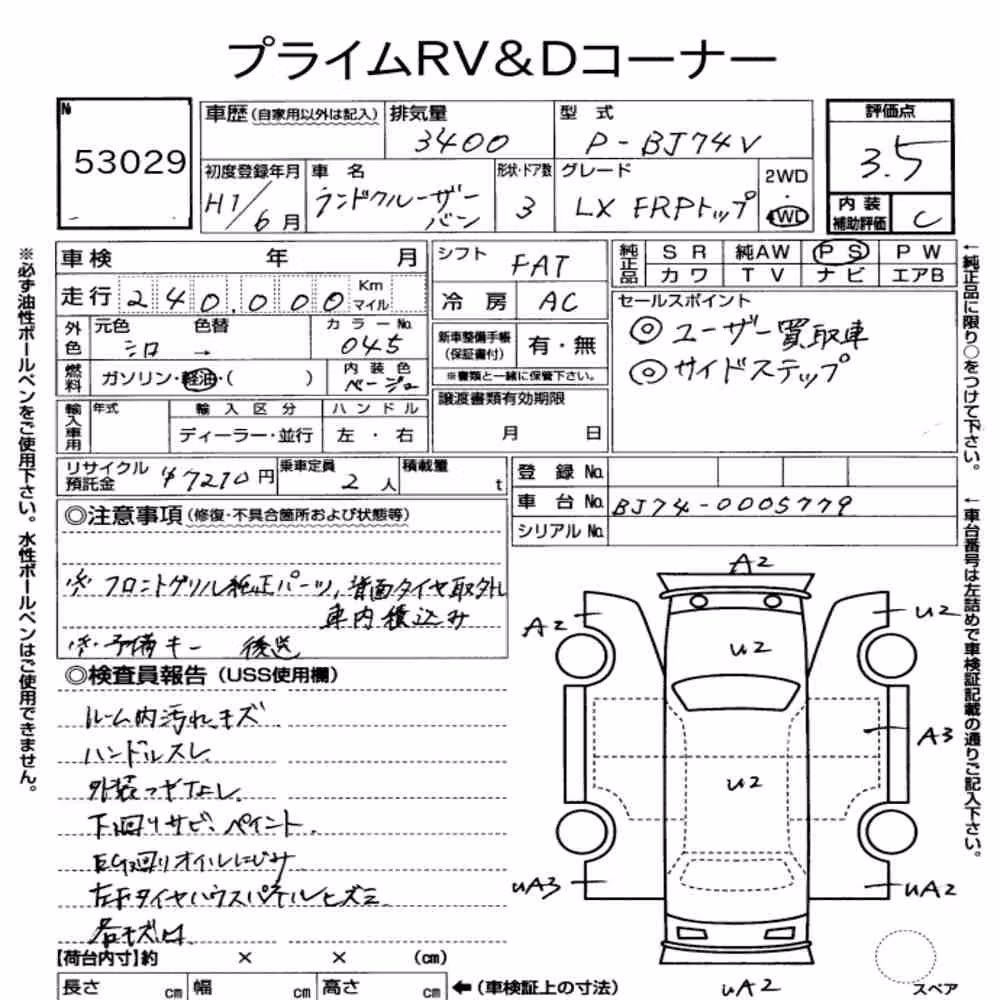 プライムRV&Dコーナー
№ 53029
車歴(自家用以外は記入) 排気量 3400 型式 P-BJ74V
初度登録年月 H1/6月 車名 ランドクルーザーバン 形状・ドア数 3 グレード LX FRPトップ 2WD 4WD
評価点 3.5
内装補助評価 C
※必ず油性ボールペンをご使用下さい。水性ボールペンはご使用できません。
車検 年 月
走行 240,000 Km マイル
外色 元色 シロ 色替 → カラーNo. 045
燃料 ガソリン・軽油・( ) 内装色 ベージュ
輸入車用 年式 輸入区分 ディーラー・並行 ハンドル 左・右
シフト FAT
冷房 AC
新車整備手帳(保証書付) 有・無
※書類と一緒に保管下さい。
譲渡書類有効期限
月 日
純正品 SR 純AW PS PW
カワ TV ナビ エアB
セールスポイント
◎ユーザー買取車
◎サイドステップ
←純正品に限り○をつけて下さい。
リサイクル預託金 ¥7210円 乗車定員 2人 積載量 t
登録No.
車台No. BJ74-0005779
シリアルNo.
←車台番号は左詰めで車検証記載の通りご記入下さい。
◎注意事項(修復・不具合箇所および状態等)
※フロントグリル純正パーツ,背面タイヤ取外し
車内積込み
※予備キー 後送
◎検査員報告(USS使用欄)
ルーム内汚れキズ
ハンドルスレ
外装ツヤなし.
下廻りサビ、ペイント.
EG廻りオイルにじみ
左Fタイヤハウスパネルヒズミ
各キズ凹
A2
A2
U2
U2
A3
U2
UA3
UA2
UA2
スペア
【荷台内寸】約 × × (cm)
長さ cm 幅 cm 高さ cm ←(車検証上の寸法)